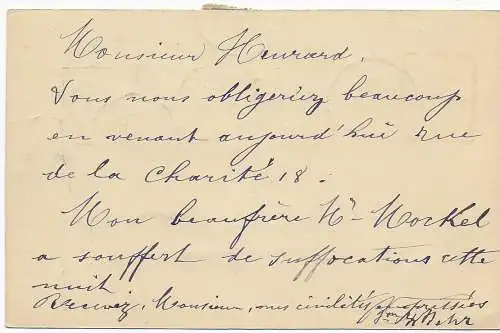 Monsieur Henrard.
Vous nous obligeriez beaucoup
en venant aujourd'hui rue
de la Charité 18.
Mon beaufrère Mr Mockel
a souffert de suffocations cette
nuit
Recevez, Monsieur, mes civilités empressées
Behr